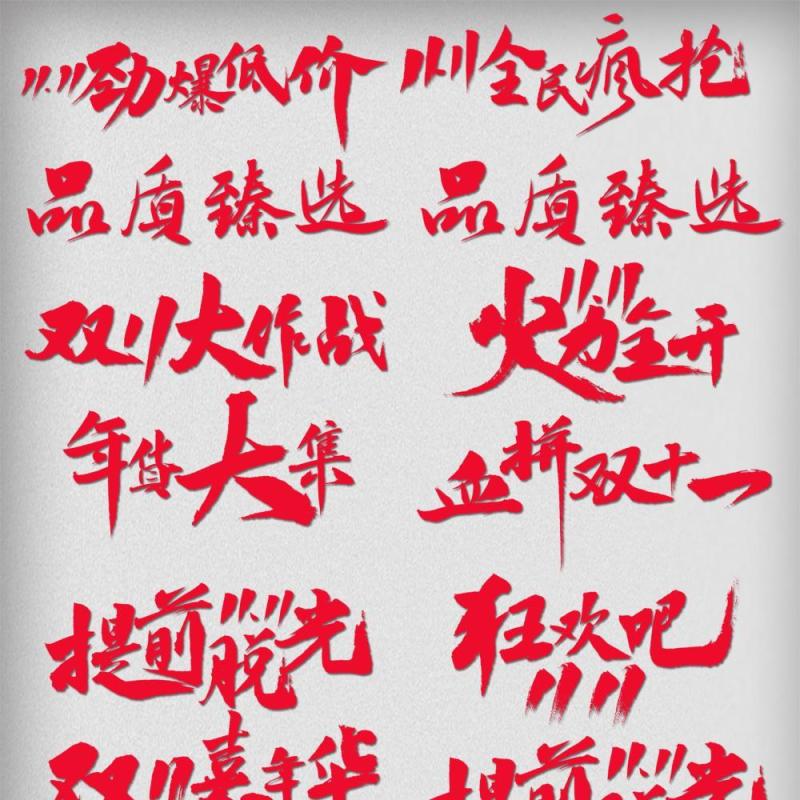 11.11劲爆低价
1111全民疯抢
品质臻选
品质臻选
双11大作战
11.11火力全开
年货大集
血拼双十一
提前11.11脱光
狂欢吧11.11
双11嘉年华
提前11.11脱光